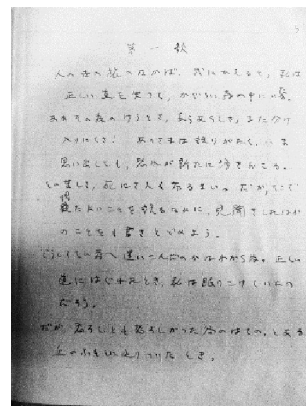 第一歌
人の世の旅のなかば、我にかえると、私は
正しい道を失って、かぐらい森の中にいた。
ああその森のけうとさ、あらくして、また分け
入りにくさ! ありさまは語りがたく、いま
思い出しても、恐れが新たに湧きおこる。
その苦しさ、死にさえも劣るまい。だが、そこで
得たよいことを語るために、見聞きしたほか
のことをも書きとどめよう。
どうしてその森へ迷いこんだのかはわからぬ。正しい
道にはぐれたとき、私は眠りこけていたの
だろう。
だが、恐ろしくも恐ろしかった谷のはての、とある
丘のふもとに辿りついたとき、